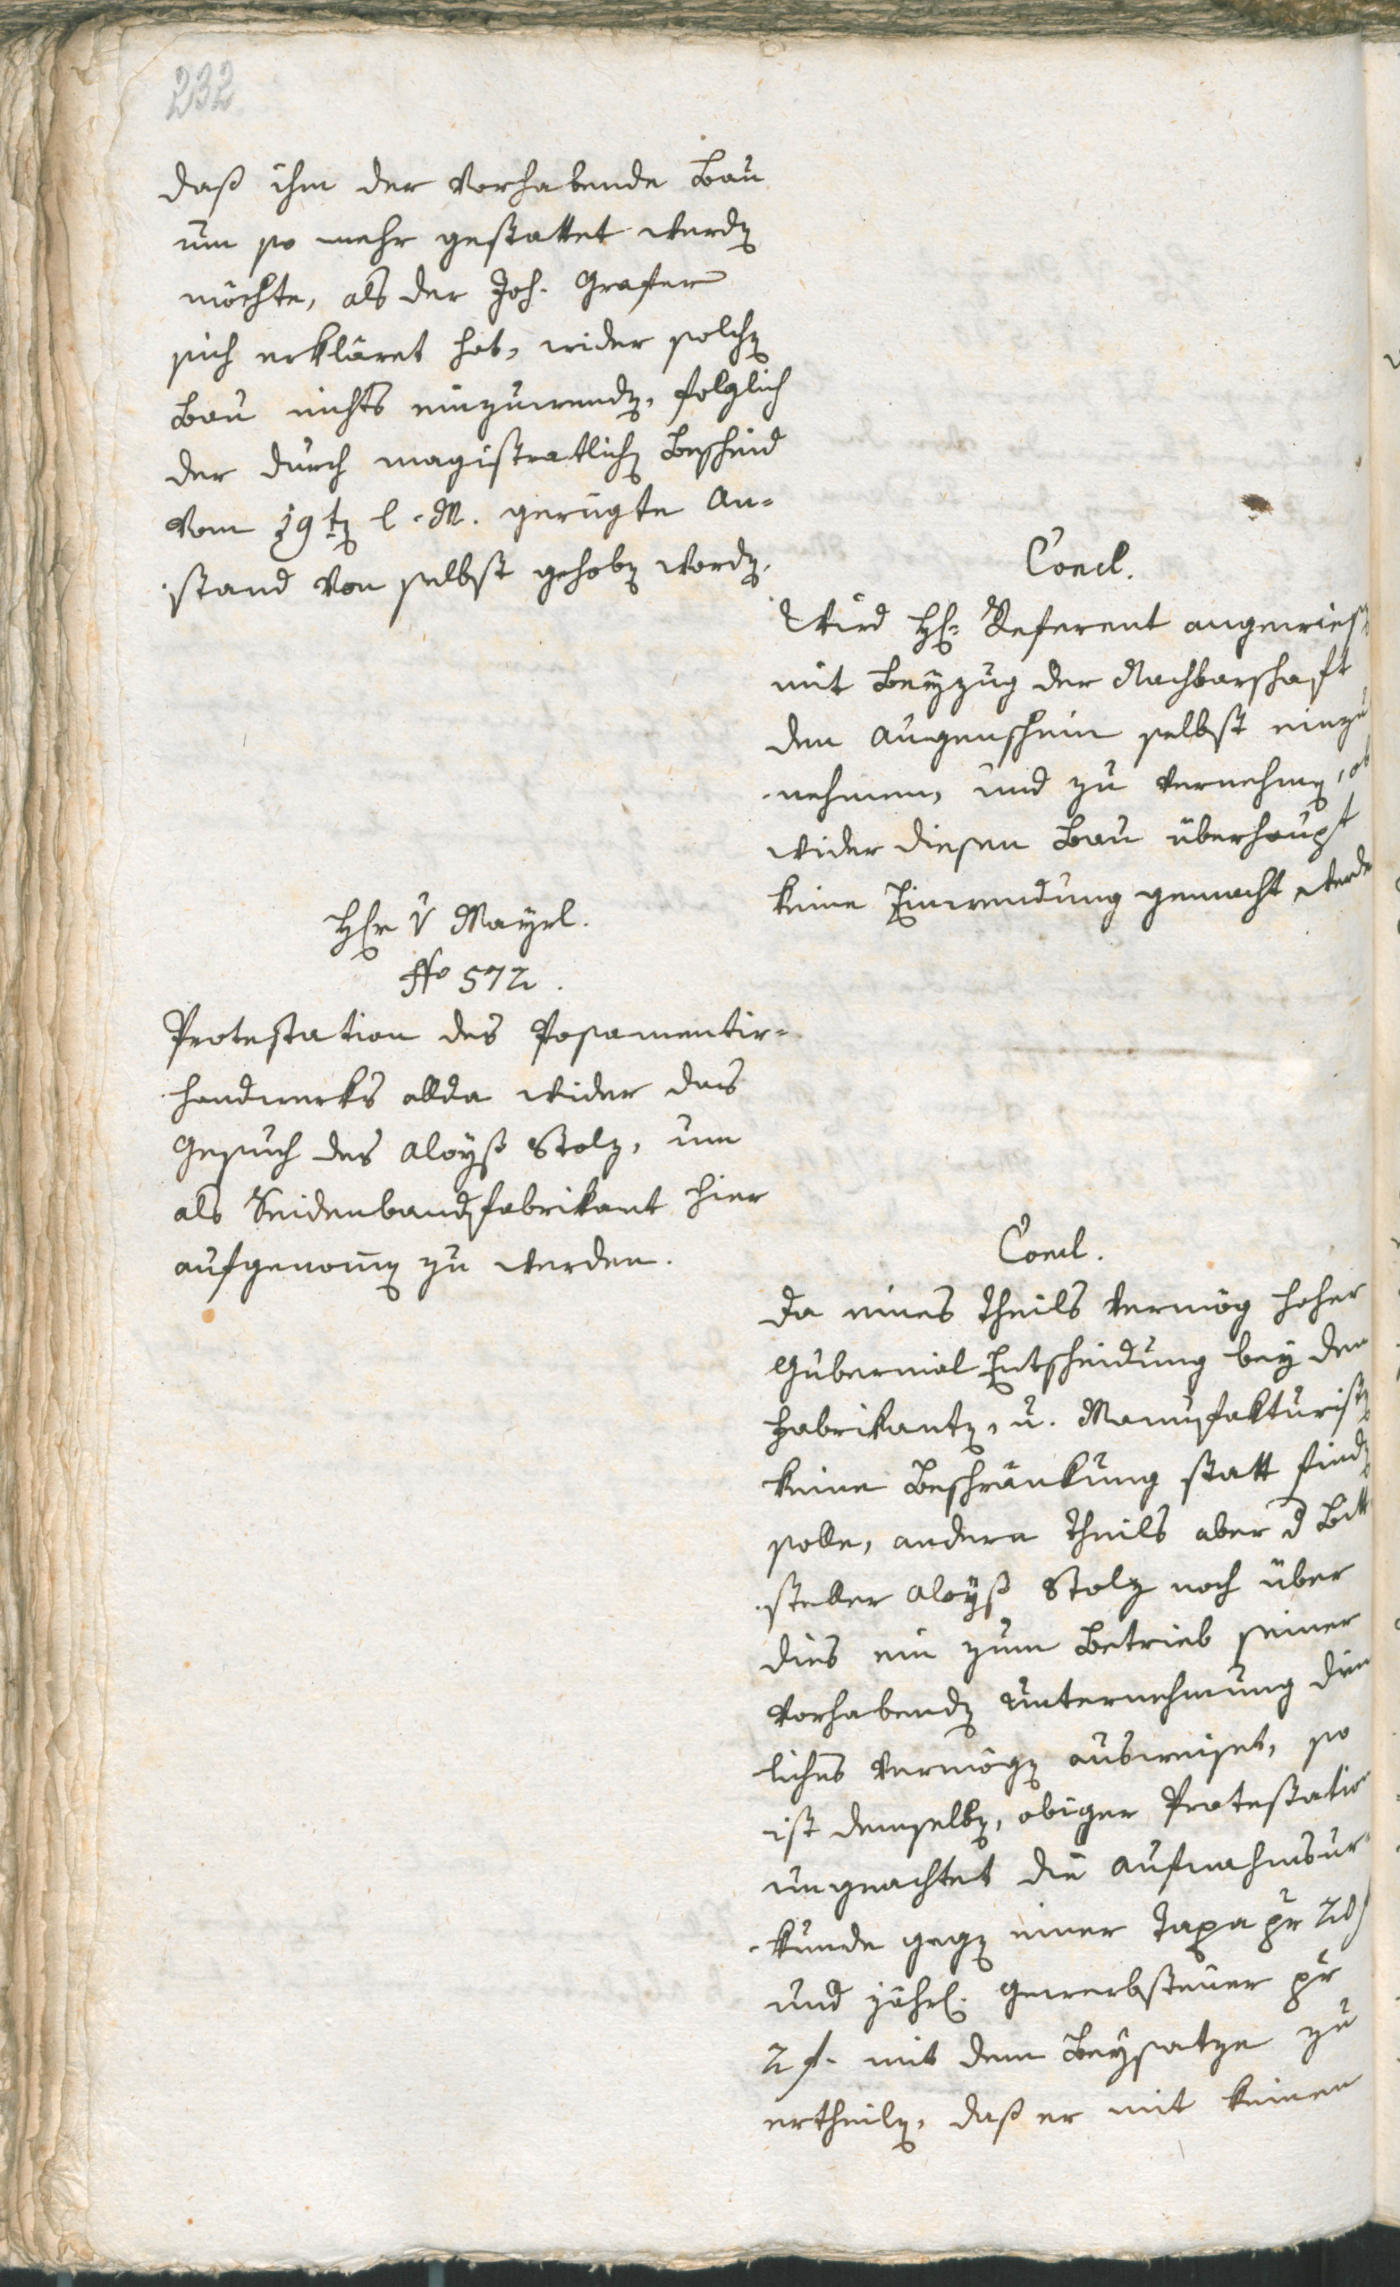 232
daß ihm der vorhabende Bau
um so mehr gestattet werdn
möchte, als der Joh. Graser
sich erkläret hat, wider solchn
Bau nichts einzuwendn, folglich
der durch magistratlichn Bescheid
vom 19tn l. M. gerügte An-
stand von selbst gehobn wordn.
Concl.
Wird H: Referent angewiesn
mit Beyzug der Nachbarschaft
den Augenschein selbst einzu
nehmen, und zu vernehmn, ob
wider diesen Bau überhaupt
keine Einwendung gemacht werde
Hr v Mayrl.
No 572.
Protestation des Posamentir-
handwerks allda wider das
Gesuch des Aloyß Stolz, um
als Seidenbandfabrikant hier
aufgenomn zu werden.
Concl.
Da eines Theils vermög hoher
Gubernial Entscheidung bey den
Fabrikantn, u. Manufakturistn
keine Beschränkung statt findn
solle, andern Theils aber d Bitt
steller Aloyß Stolz noch über
dies ein zum Betrieb seiner
vorhabendn Unternehmung dien
liches Vermögn ausweiset, so
ist demselbn, obiger Protestation
ungeachtet die Aufnahmsur
kunde gegn einer Taxa pr 20f
und jährl. Gewerbsteuer pr
2 f. mit dem Beysatze zu
ertheiln, daß er mit keinen